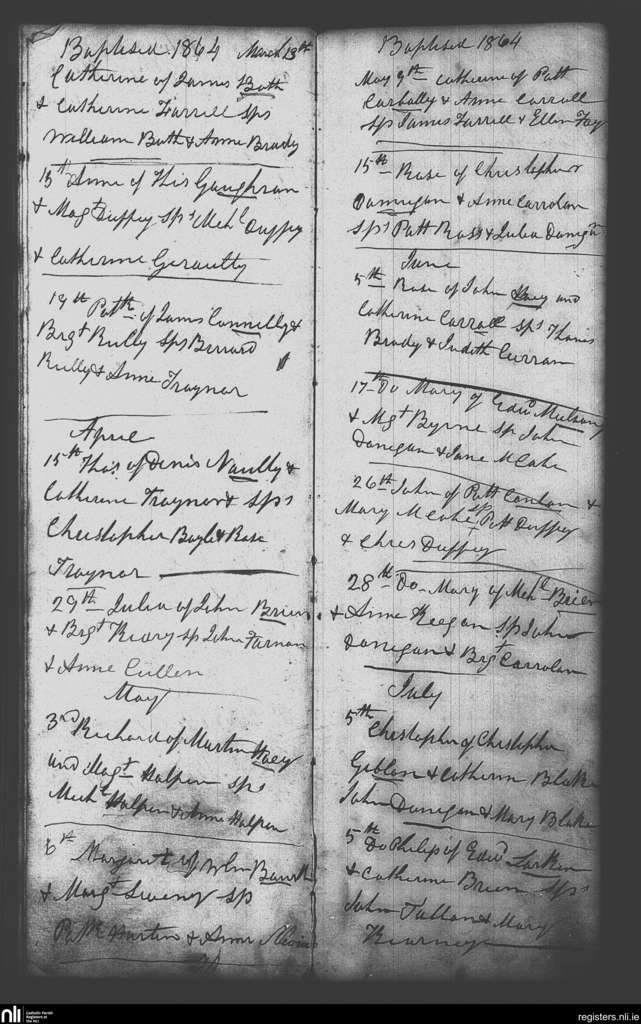 Baptised 1864 March 13th
Catherine of James Bath
& Catherine Farrell Sps
William Bath & Anne Brady
15th Anne of Thos Gaughran
& Magt Duffey Sps Mchl Duffey
& Catherine Geraulty
19th Patk of James Connelly &
Brgt Rully Sps Bernard
Rully & Anne Traynor
April
15th Thos of Denis Naully &
Catherine Traynor & Sps
Christopher Boyle & Rose
Traynor
29th Julia of John Brien
& Brgt Keary sp John Farnan
& Anne Cullen
May
3rd Richard of Martin Hoey
and Magt Halpen Sps
Michl Halpen & Anne Halpen
6th Margaret of Wlm
& Margt Sweeney Sp
Patk Martin & Anne
Baptised 1864
May 9th Catherine of Patt
Carbally & Anne Carroll
Sps James Farrell & Ellen Fay
15th Rose of Christopher
Dannigan & Anne Carrolan
Sps Patt Ross & Julia Danign
June
5th Rose of John Hoey and
Catherine Carroll Sps Thomas
Brady & Judith Curran
17th Do Mary of Edwd
& Mgt Byrne Sp John
Donegan & Jane McCabe
26th John of Patt Conlon &
Mary McCabe sps Patt Duffey
& Chres Duffey
28th Do Mary of Mchl Brien
& Anne Keegan Sp John
Donegan & Brgt Carrolan
July
5th Christopher of Christopher
Geblon & Catherin Blake
John Donegan & Mary Blake
5th Do Philip of Edwd Larkin
& Catherine Brien Sps
John Tallon & Mary
Kearney
nli
Catholic Parish
Registers at
the NLI
registers.nli.ie